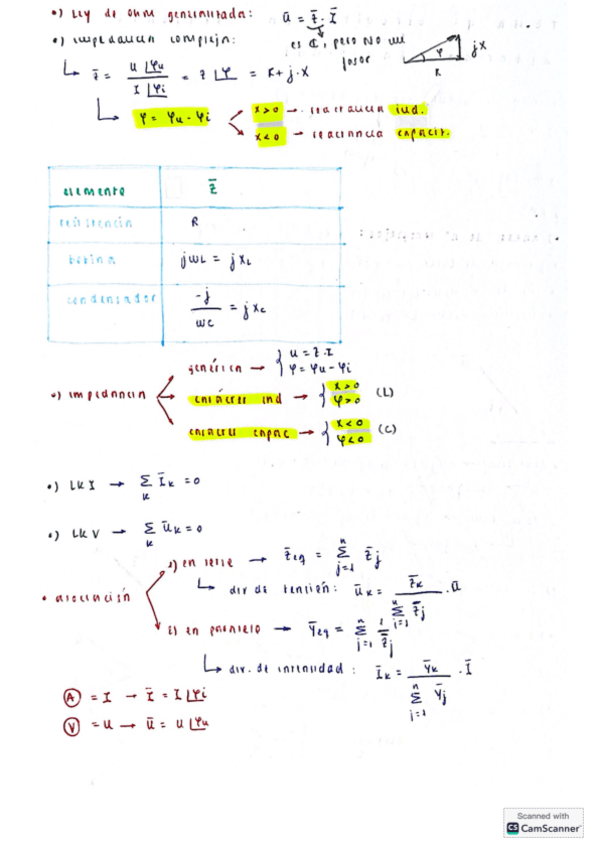 •) Ley de ohm generalizada: ū = z̄ · Ī
•) impedancia compleja: es ℂ, pero NO un fasor
φ R jX
↳ z̄ = U∠φu / I∠φi = z∠φ = R + j·X
↳ φ = φu - φi
x>0 → reactancia ind.
x<0 → reactancia capacit.
elemento z̄
resistencia R
bobina jωL = jXL
condensador -j/ωC = jXc
•) impedancia
genérica → { u = z·I
φ = φu - φi
carácter ind → { x>0
φ>0 (L)
carácter capac → { x<0
φ<0 (C)
•) LKI → Σ_k Ī_k = 0
•) LKV → Σ_k ū_k = 0
• asociación
1) en serie → z̄eq = Σ_{j=1}^{n} z̄j
↳ div de tensión: ūk = z̄k / Σ_{j=1}^{n} z̄j · ū
2) en paralelo → Ȳeq = Σ_{j=1}^{n} 1/z̄j
↳ div. de intensidad: Īk = Ȳk / Σ_{j=1}^{n} Ȳj · Ī
Ⓐ = I → Ī = I∠φi
Ⓥ = u → ū = u∠φu
Scanned with
CS CamScanner